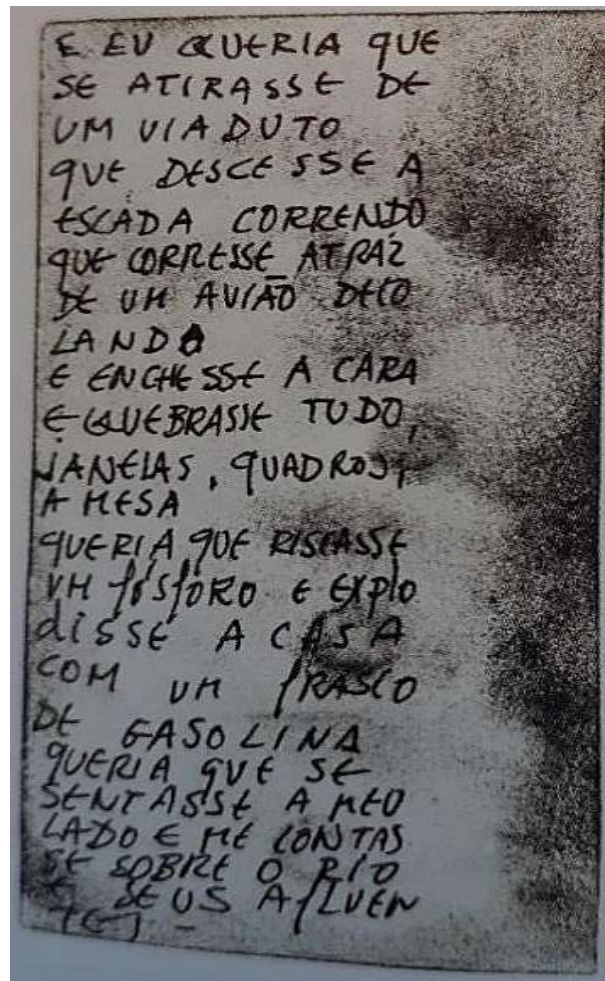 E EU QUERIA QUE
SE ATIRASSE DE
UM VIADUTO
QUE DESCESSE A
ESCADA CORRENDO
QUE CORRESSE ATRAZ
DE UM AVIÃO DECO
LANDO
E ENCHESSE A CARA
E QUEBRASSE TUDO,
JANELAS, QUADROS,
A MESA
QUERIA QUE RISCASSE
UM fósforo E EXplo
disse A CASA
COM UM fRASCO
DE GASOLINA
QUERIA QUE SE
SENTASSE A MEO
LADO E ME CONTAS
SE SOBRE O RIO
E SEUS AfLUEN
TES -